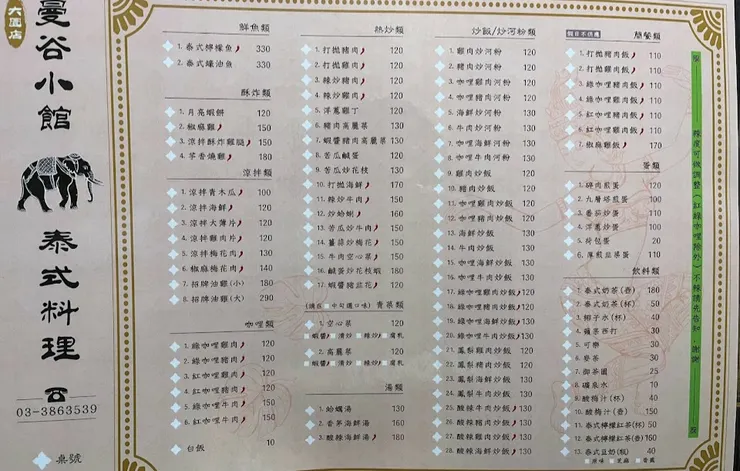 大園店
曼谷小館
泰式料理
03-3863539
桌號
鮮魚類
1. 泰式檸檬魚 330
2. 泰式豉油魚 330
酥炸類
1. 月亮蝦餅 120
2. 椒麻雞 150
3. 涼拌酥炸雞腿 150
4. 芋香燒雞 180
涼拌類
1. 涼拌青木瓜 100
2. 涼拌海鮮 120
3. 涼拌大薄片 120
4. 涼拌雞肉片 120
5. 涼拌梅花肉 130
6. 椒麻梅花肉 140
7. 招牌油雞(小) 180
8. 招牌油雞(大) 290
咖哩類
1. 綠咖哩雞肉 120
2. 綠咖哩豬肉 120
3. 紅咖哩雞肉 120
4. 紅咖哩豬肉 120
5. 綠咖哩牛肉 150
6. 紅咖哩牛肉 150
白飯 10
熱炒類
1. 打拋豬肉 120
2. 打拋雞肉 120
3. 辣炒豬肉 120
4. 辣炒雞肉 120
5. 洋蔥雞丁 120
6. 豬肉高麗菜 130
7. 蝦醬豬肉高麗菜 130
8. 苦瓜鹹蛋 120
9. 苦瓜炒花枝 130
10. 打拋海鮮 170
11. 辣炒牛肉 150
12. 炒蛤蜊 160
13. 苦瓜炒牛肉 150
14. 薑蒜炒梅花 150
15. 牛肉空心菜 150
16. 鹹蛋炒花枝蝦 180
17. 蝦醬豬韮花 120
青菜類
1. 空心菜 120
蝦醬 清炒 辣炒 腐乳
2. 高麗菜 120
蝦醬 清炒 辣炒 腐乳
湯類
1. 蛤蠣湯 130
2. 香茅海鮮湯 160
3. 酸辣海鮮湯 180
炒飯/炒河粉類
1. 雞肉炒河粉 120
2. 豬肉炒河粉 120
3. 咖哩雞肉河粉 120
4. 咖哩豬肉河粉 120
5. 海鮮炒河粉 130
6. 牛肉炒河粉 130
7. 咖哩海鮮河粉 130
8. 咖哩牛肉河粉 130
9. 雞肉炒飯 120
10. 豬肉炒飯 120
11. 咖哩雞肉炒飯 120
12. 咖哩豬肉炒飯 120
13. 海鮮炒飯 130
14. 牛肉炒飯 130
15. 咖哩海鮮炒飯 130
16. 咖哩牛肉炒飯 130
17. 綠咖哩雞肉炒飯 120
18. 綠咖哩豬肉炒飯 120
19. 綠咖哩海鮮炒飯 130
20. 綠咖哩牛肉炒飯 130
21. 鳳梨雞肉炒飯 120
22. 鳳梨豬肉炒飯 120
23. 鳳梨海鮮炒飯 130
24. 鳳梨牛肉炒飯 130
25. 酸辣牛肉炒飯 130
26. 酸辣海鮮炒飯 130
27. 酸辣豬肉炒飯 120
28. 酸辣雞肉炒飯 120
假日不供應 簡餐類
1. 打拋豬肉飯 110
2. 打拋雞肉飯 110
3. 綠咖哩豬肉飯 110
4. 綠咖哩雞肉飯 110
5. 紅咖哩豬肉飯 110
6. 紅咖哩雞肉飯 110
7. 椒麻雞飯 170
蛋類
1. 碎肉煎蛋 120
2. 九層塔煎蛋 100
3. 番茄炒蛋 110
4. 洋蔥炒蛋 100
5. 荷包蛋 20
6. 薄煎韮菜蛋 110
飲料類
1. 泰式奶茶(壺) 180
2. 泰式奶茶(杯) 50
3. 椰子水(杯) 40
4. 彌famille西打 30
5. 可樂 30
6. 麥茶 30
7. 御茶園 25
8. 礦泉水 10
9. 酸梅汁(杯) 40
10. 酸梅汁(壺) 150
11. 泰式檸檬紅茶(杯) 50
12. 泰式檸檬紅茶(壺) 160
13. 泰式豆奶(瓶) 40
原味
辣度可做調整(紅綠咖哩除外)不辣請先告知,謝謝